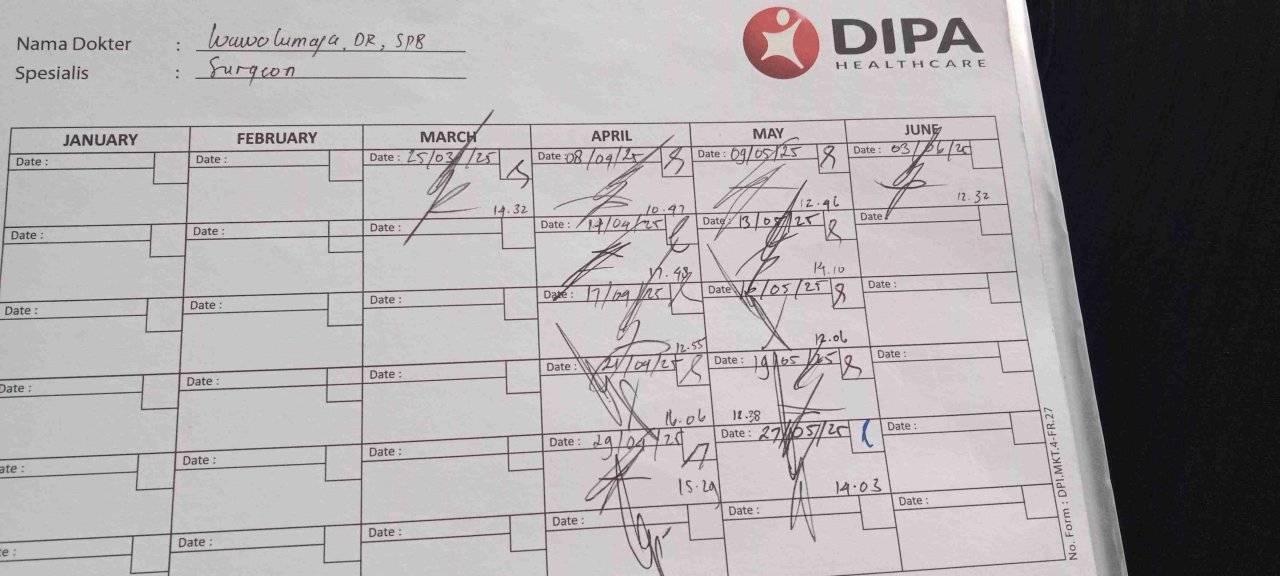 Nama Dokter : Wawolumaja, DR, SPB
Spesialis : Surgeon
DIPA
HEALTHCARE
JANUARY FEBRUARY MARCH APRIL MAY JUNE
Date : Date : Date : 25/03/25 Date : 08/04/25 Date : 09/05/25 Date : 03/06/25
14.32 10.47 12.46 12.32
Date : Date : Date : Date : 14/04/25 Date : 13/05/25 Date
17.48 14.10
Date : Date : Date : Date : 17/04/25 Date : 16/05/25 Date :
12.55 12.06
Date : Date : Date : Date : 21/04/25 Date : 19/05/25 Date :
16.06 12.38
ate : Date : Date : Date : 29/04/25 Date : 27/05/25 Date :
15.29 14.03
te : Date : Date : Date : Date : Date :
No. Form : DPI.MKT.4-FR.27